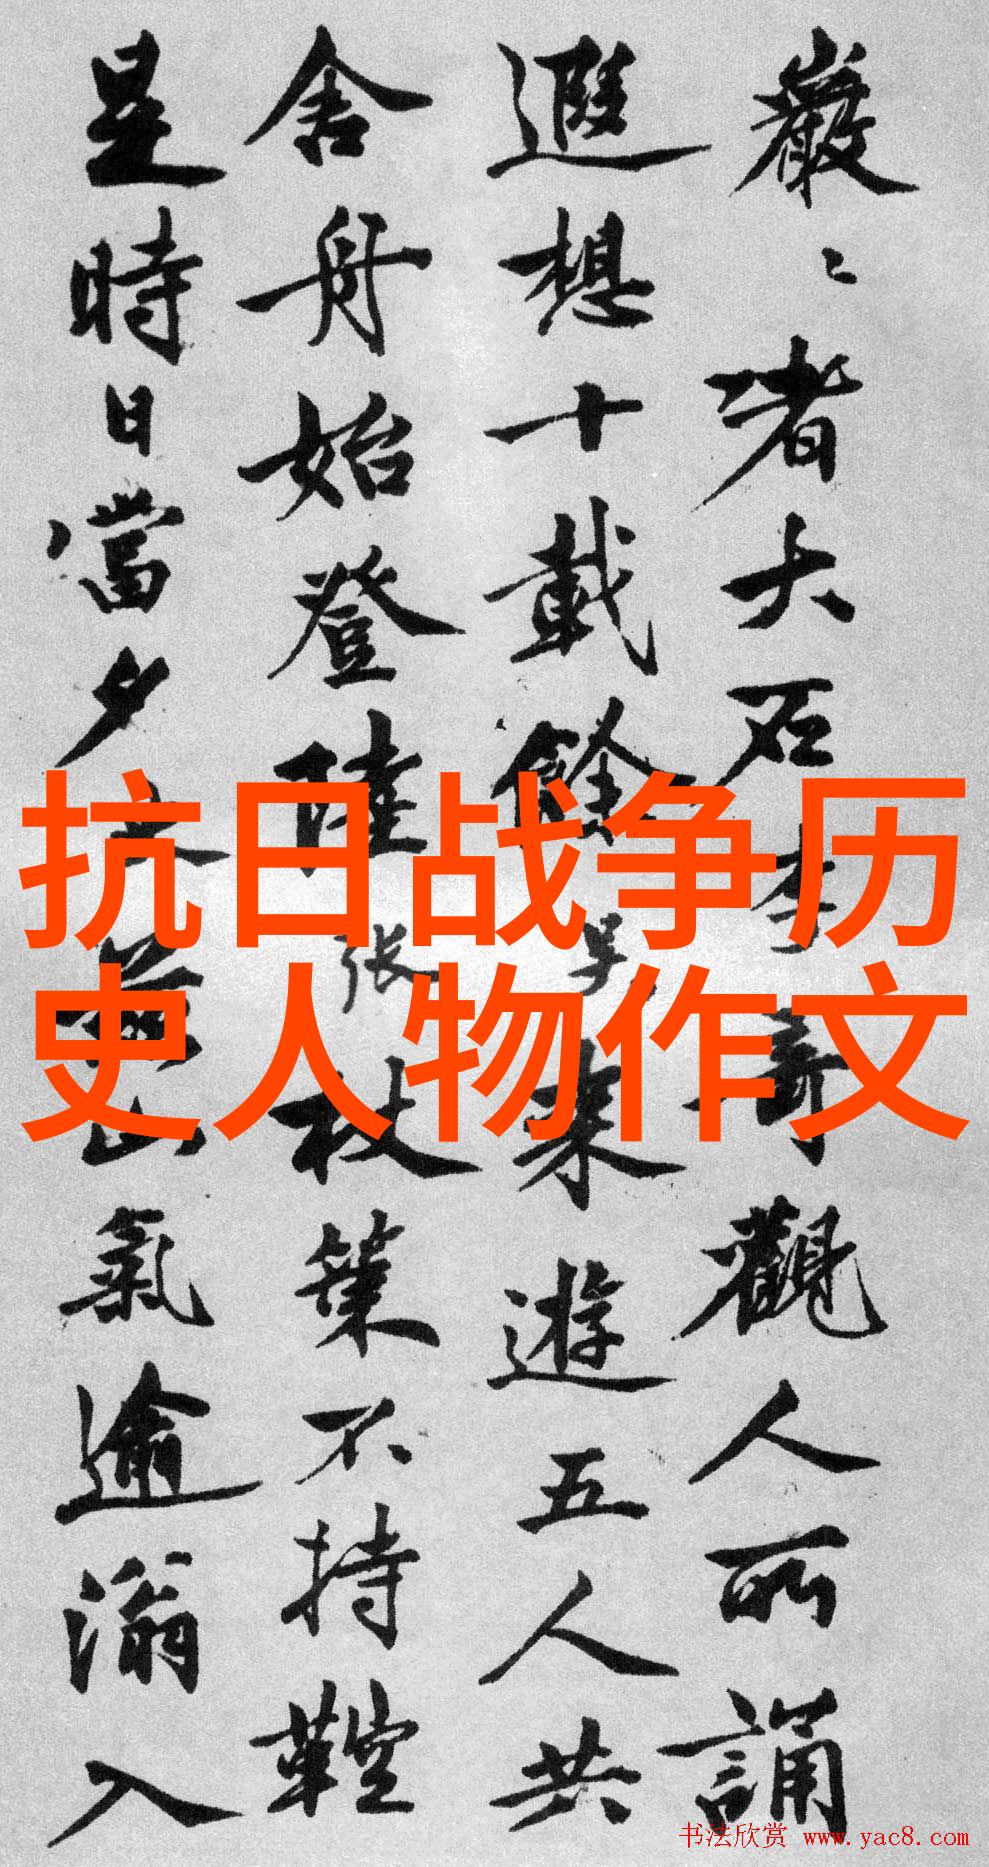 巖〻者大石李奇觀人所誦
遐想十載餘吴来遊五人共
舍舟始登陸张杖策不持鞚
是時日當夕山氣逾滃入
抗日战争历
史人物作文
书法欣赏 www.yac8.com